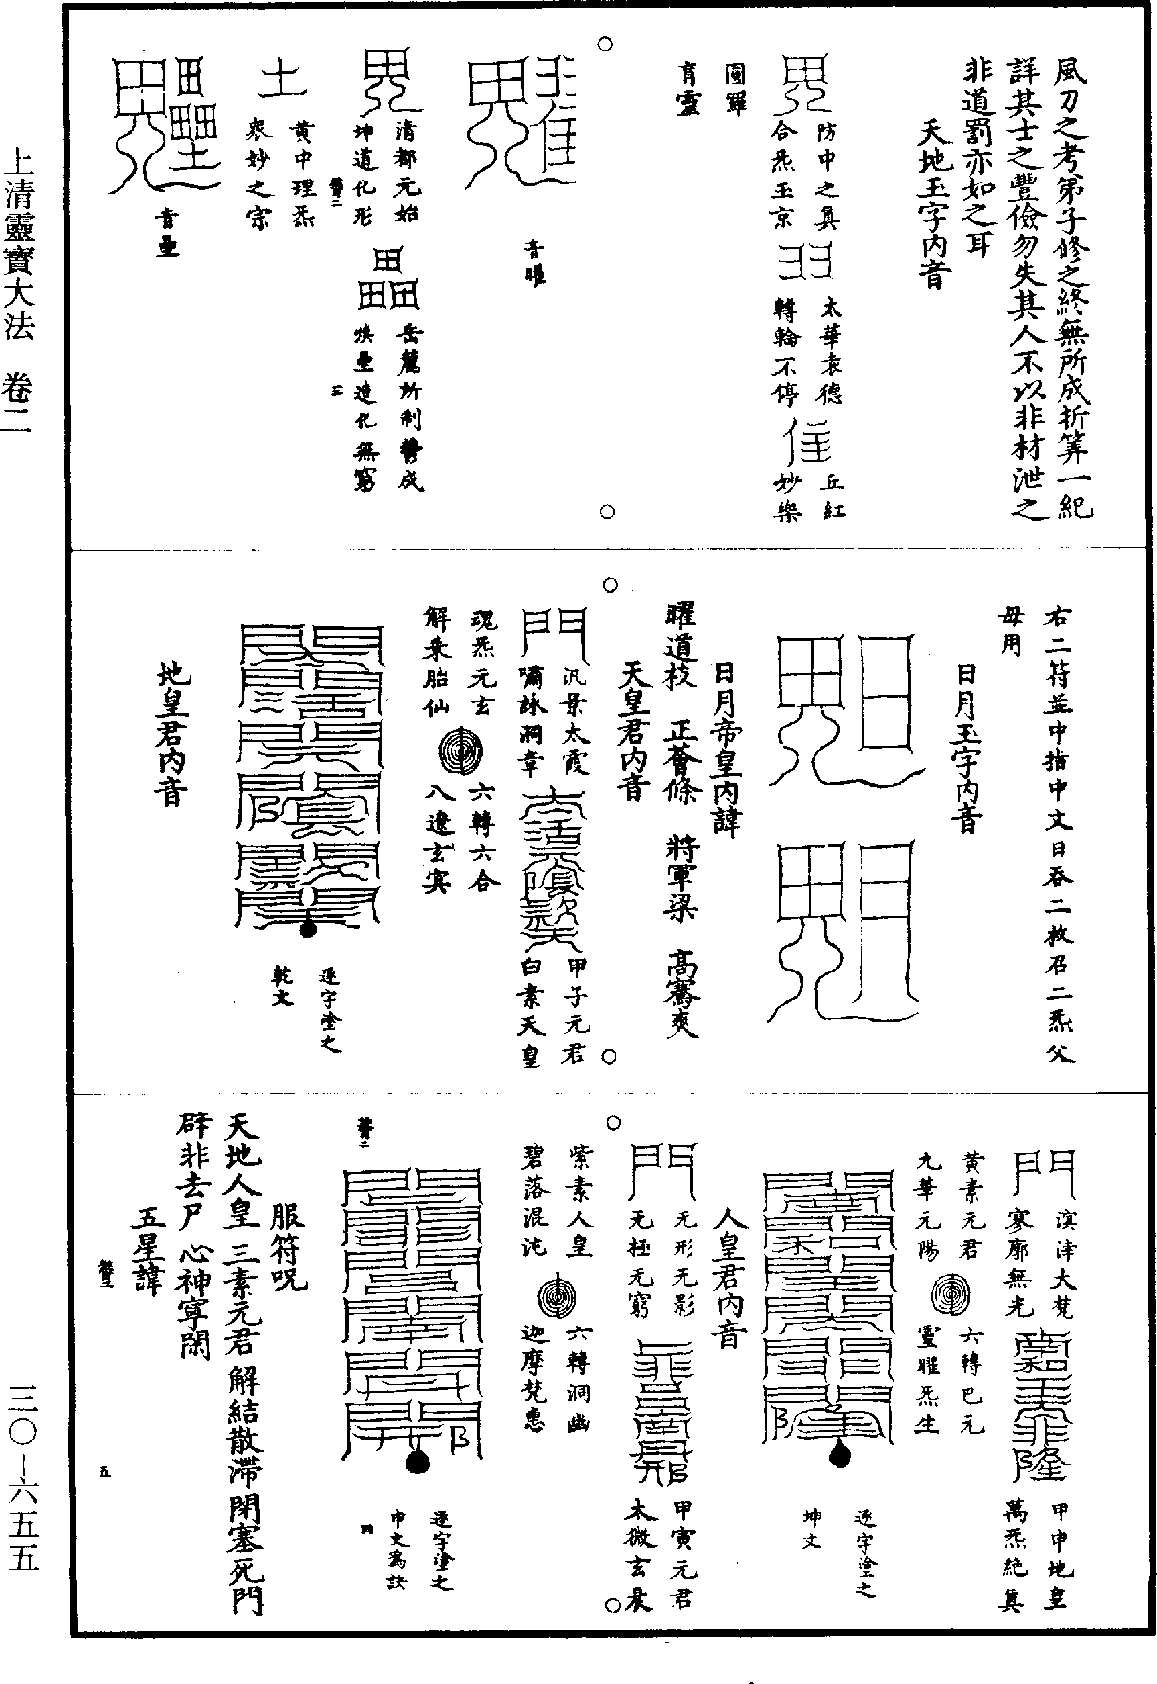 上清靈寶大法　卷二
三〇－六五五
風刀之考第子修之終無所成折筭一紀
詳其士之豐儉勿失其人不以非材泄之
非道罰亦如之耳
天地玉字内音
防中之真
合炁玉京
太華哀德
轉輪不停
丘紅
妙樂
育靈
音曜
清都元始
坤道化形
岳麓所制
造化無窮
土
黄中理炁
衆妙之宗
音壘
右二符並中指中文日吞二枚召二炁父
母用
日月玉字内音
日月帝皇内諱
曜道枝　正薈條　將軍梁　高騫爽
天皇君内音
汎景太霞
嘯詠洞章
甲子元君
白素天皇
魂炁元玄
解乘胎仙
六轉六合
八遼玄冥
逐字塗之
乾文
地皇君内音
溟涬大梵
寥廓無光
甲申地皇
萬炁絶真
黄素元君
九華元陽
六轉巳元
靈曜炁生
逐字塗之
坤文
人皇君内音
无形无影
无極无窮
甲寅元君
太微玄晨
紫素人皇
碧落混沌
六轉洞幽
迦摩梵惠
逐字塗之
中文爲訣
四
服符呪
天地人皇　三素元君　解結散滯　閉塞死門
辟非去尸　心神寧閑
五星諱
五